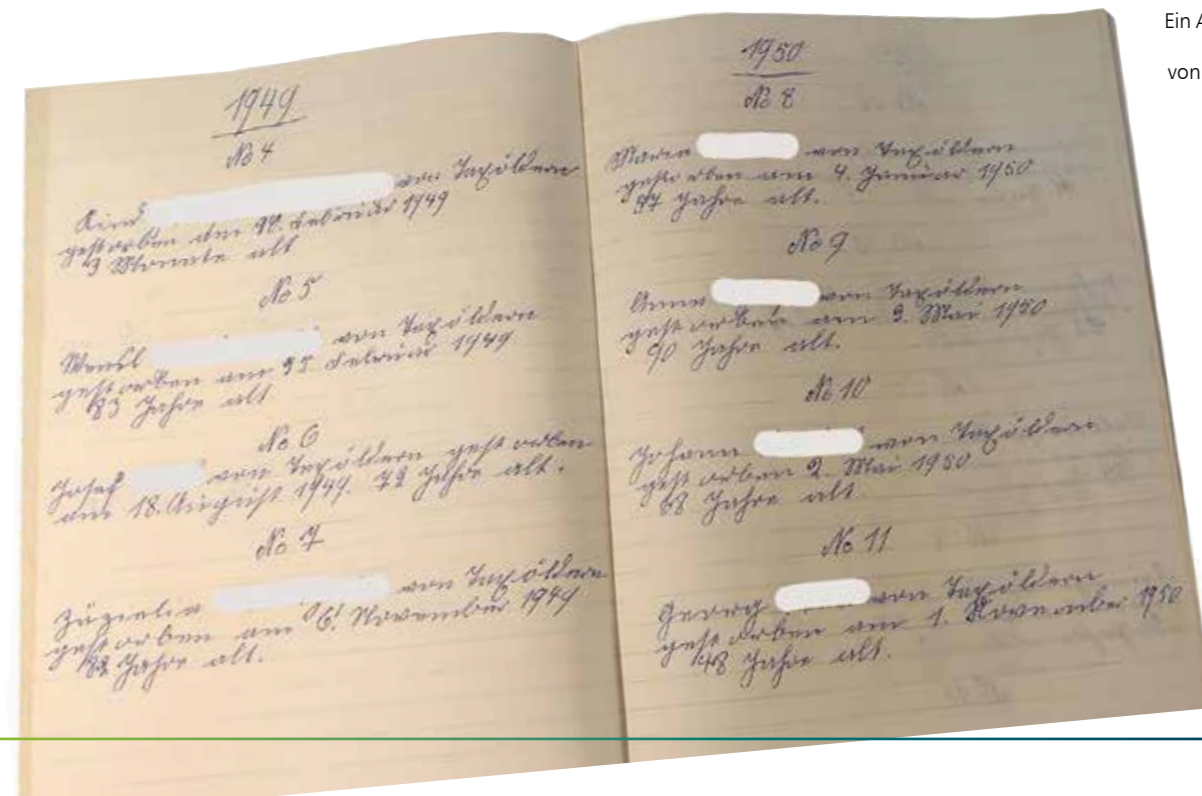 Ein
von
1949
No 4
Kind von Taxöldern
gestorben am Februar 1949
3 Monate alt
No 5
von Taxöldern
gestorben am Februar 1949
83 Jahre alt
No 6
Josef von Taxöldern gestorben
am 18. August 1949. 72 Jahre alt.
No 7
Züzielia von Taxöldern
gestorben am 6. November 1949
82 Jahre alt.
1950
No 8
Maria von Taxöldern
gestorben am 4. Januar 1950
Jahre alt.
No 9
Anna von Taxöldern
gestorben am 3. Mai 1950
90 Jahre alt.
No 10
Johann von Taxöldern
gestorben 2. Mai 1950
Jahre alt
No 11
Georg von Taxöldern
gestorben am 1. November 1950
48 Jahre alt.